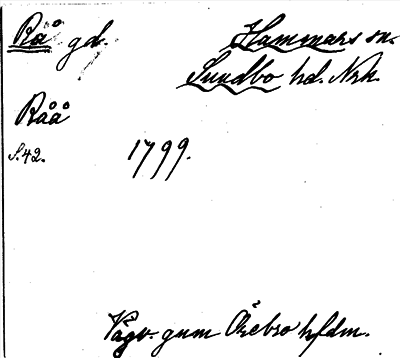 Rå gd. Hammars sn.
Sundbo hd. Nrk.
Råå
S.42. 1799.
Vägv. gnm Örebro hfdm.